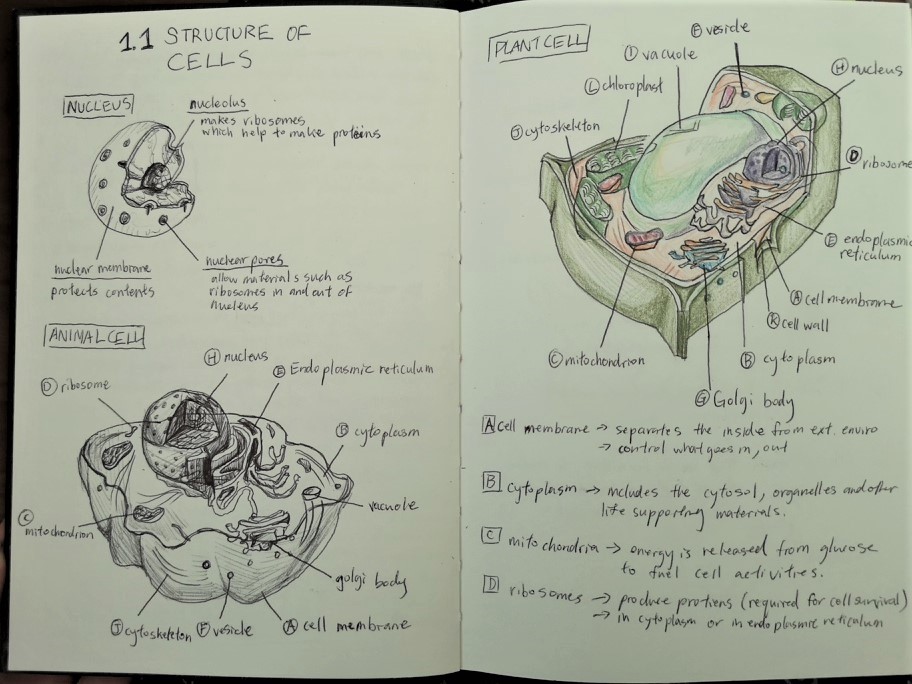 1.1 STRUCTURE OF
CELLS
NUCLEUS
nucleolus
makes ribosomes
which help to make proteins
nuclear membrane
protects contents
nuclear pores
allow materials such as
ribosomes in and out of
nucleus
ANIMAL CELL
H nucleus
E Endoplasmic reticulum
D ribosome
B cytoplasm
vacuole
C
mitochondrion
golgi body
J cytoskeleton
F vesicle
A cell membrane
PLANT CELL
F vesicle
I vacuole
H nucleus
L chloroplast
J cytoskeleton
D
ribosome
E endoplasmic
reticulum
A cell membrane
K cell wall
C mitochondrion
B cytoplasm
G Golgi body
A cell membrane → separates the inside from ext. enviro
→ control what goes in, out
B cytoplasm → includes the cytosol, organelles and other
life supporting materials.
C mitochondria → energy is released from glucose
to fuel cell activitres.
D ribosomes → produce protiens (required for cell survival)
→ in cytoplasm or in endoplasmic reticulum